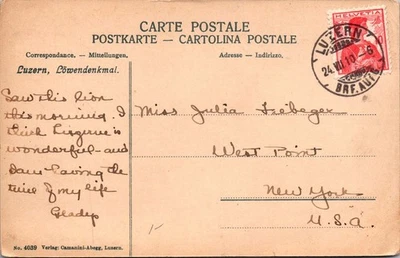 CARTE POSTALE
POSTKARTE - CARTOLINA POSTALE
Correspondance. - Mitteilungen.
Adresse - Indirizzo.
Luzern, Löwendenkmal.
Saw this lion
this morning. I
think Luzerne is
wonderful - and
am having the
time of my life
Gladys
Miss Julia
West Point
New York
U.S.A.
1-
HELVETIA
LUZERN
24.VII.10.-6
BRF.AUFG.
No. 4039 Verlag: Camanini-Abegg, Luzern.